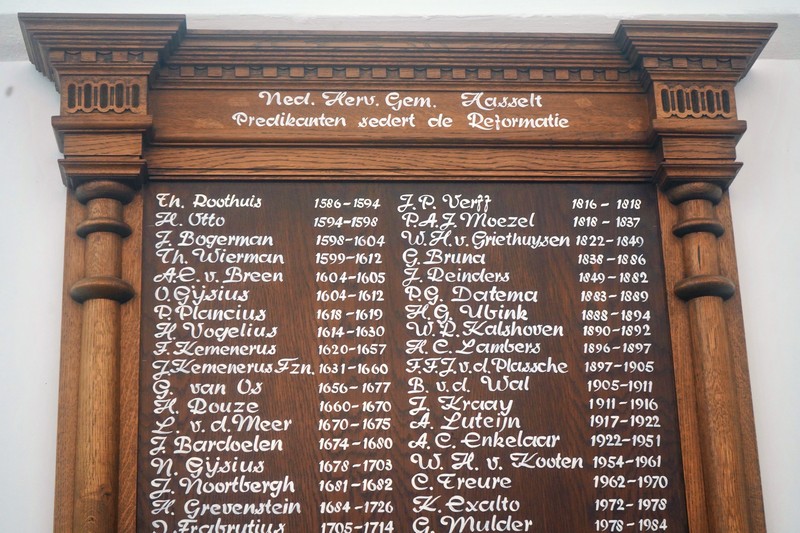 Ned. Herv. Gem. Hasselt
Predikanten sedert de Reformatie
Th. Roothuis 1586-1594
H. Otto 1594-1598
J. Bogerman 1598-1604
Th. Wierman 1599-1612
A.C. v. Breen 1604-1605
O. Gÿsius 1604-1612
P. Plancius 1618-1619
H. Vogelius 1614-1630
F. Kemenerus 1620-1657
J. Kemenerus Fzn. 1631-1660
G. van Os 1656-1677
H. Rouze 1660-1670
L. v. d. Meer 1670-1675
J. Bardoelen 1674-1680
N. Gÿsius 1678-1703
J. Noortbergh 1681-1682
H. Grevenstein 1684-1726
J. Frabrutius 1705-1714
J. P. Verff 1816-1818
P.A.J. Moezel 1818-1837
W. H. v. Griethuysen 1822-1849
G. Bruna 1838-1886
J. Reinders 1849-1882
P.G. Datema 1883-1889
H.G. Ubink 1888-1894
W. R. Kalshoven 1890-1892
H. C. Lambers 1896-1897
F.F.J. v.d. Plassche 1897-1905
B. v.d. Wal 1905-1911
J. Kraay 1911-1916
A. Luteijn 1917-1922
A. C. Enkelaar 1922-1951
W. H. v. Kooten 1954-1961
C. Treure 1962-1970
K. Exalto 1972-1978
G. Mulder 1978-1984